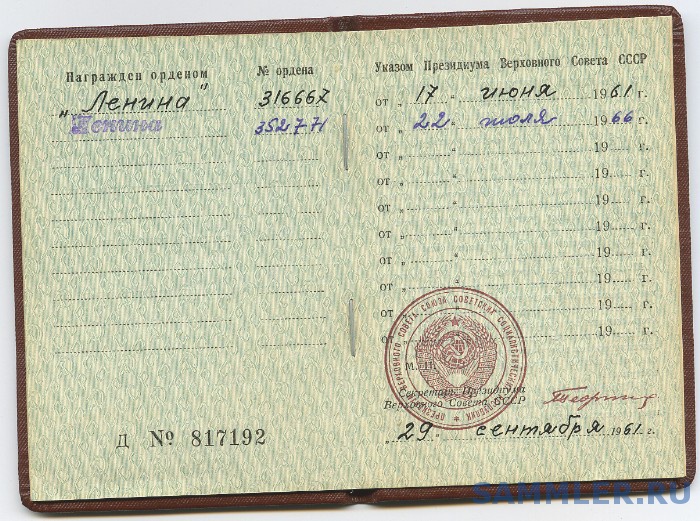 Награжден орденом
№ ордена
„Ленина" 316667
Ленина 352771
Д № 817192
Указом Президиума Верховного Совета СССР
от „ 17 " июня 1961 г.
от „ 22 " июля 1966 г.
от „ " 19 г.
от „ " 19 г.
от „ " 19 г.
от „ " 19 г.
от „ " 19 г.
от „ " 19 г.
от „ 19 г.
от 19 г.
М. П.
Секретарь Президиума
Верховного Совета СССР
„ 29 " сентября 1961 г.
ПРЕЗИДИУМ ВЕРХОВНОГО СОВЕТА СОЮЗА СОВЕТСКИХ СОЦИАЛИСТИЧЕСКИХ РЕСПУБЛИК
SAMMLER.RU